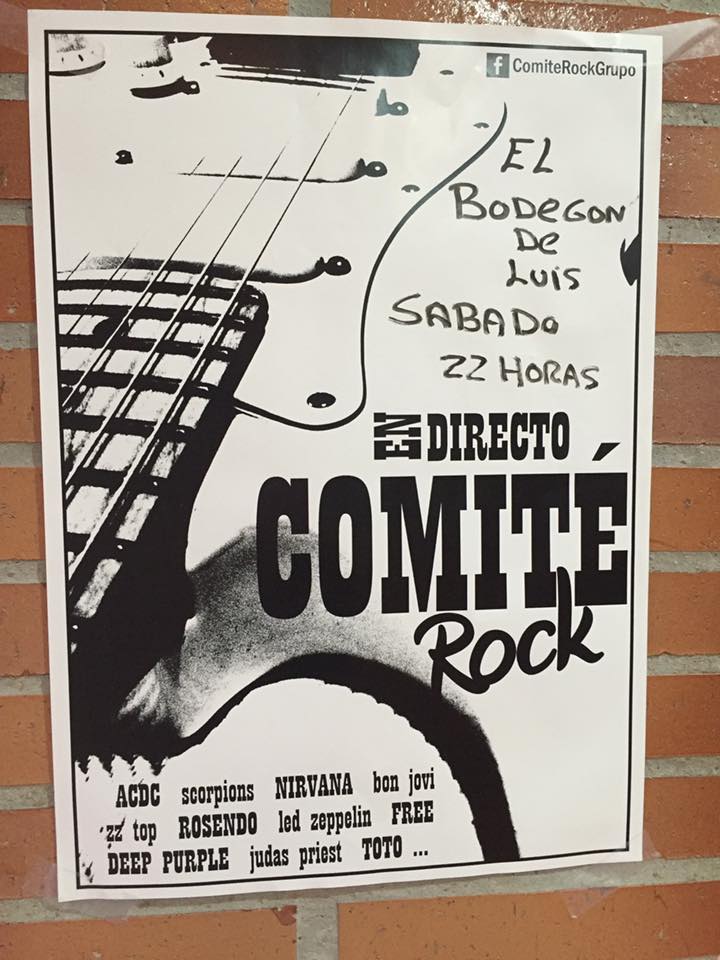 f ComiteRockGrupo
EL
BODEGON
DE
LUIS
SABADO
22 HORAS
EN DIRECTO
COMITÉ
Rock
ACDC scorpions NIRVANA bon jovi
zz top ROSENDO led zeppelin FREE
DEEP PURPLE judas priest TOTO ...